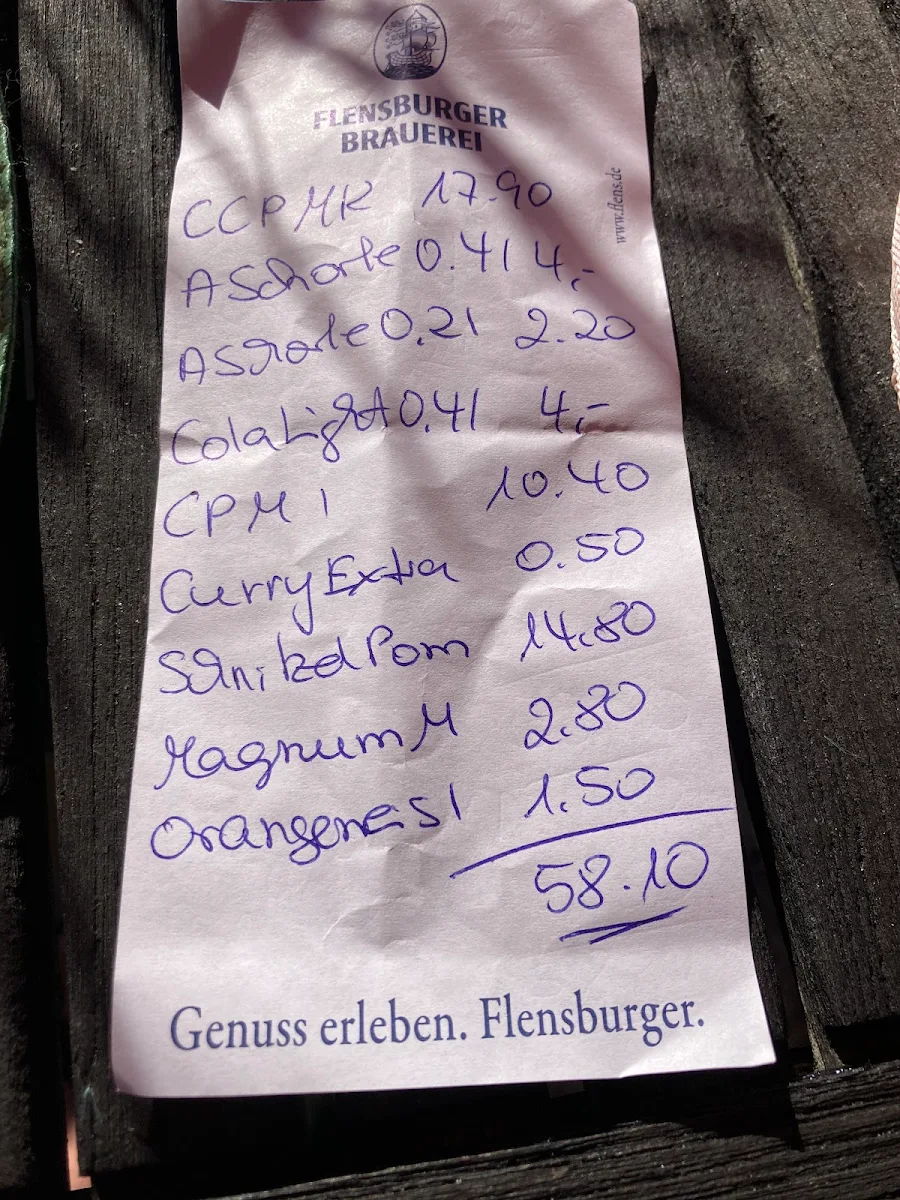 FLENSBURGER
BRAUEREI
www.flens.de
CCPMK 17.90
ASchorle 0.4l 4,-
ASchorle 0,2l 2.20
Cola Light 0,4l 4,-
CPM 1 10.40
Curry Extra 0.50
Schnitzel Pom 14.80
Magnum M 2.80
1.50
58.10
Genuss erleben. Flensburger.